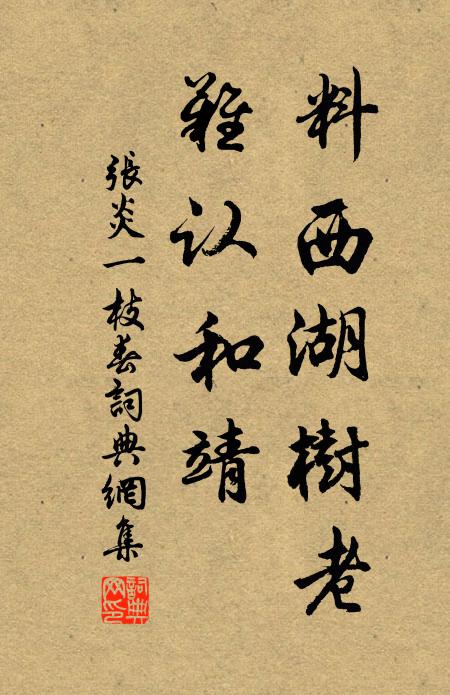 料西湖樹老
難认和靖
張炎一枝春詞典網集
詞典
网印